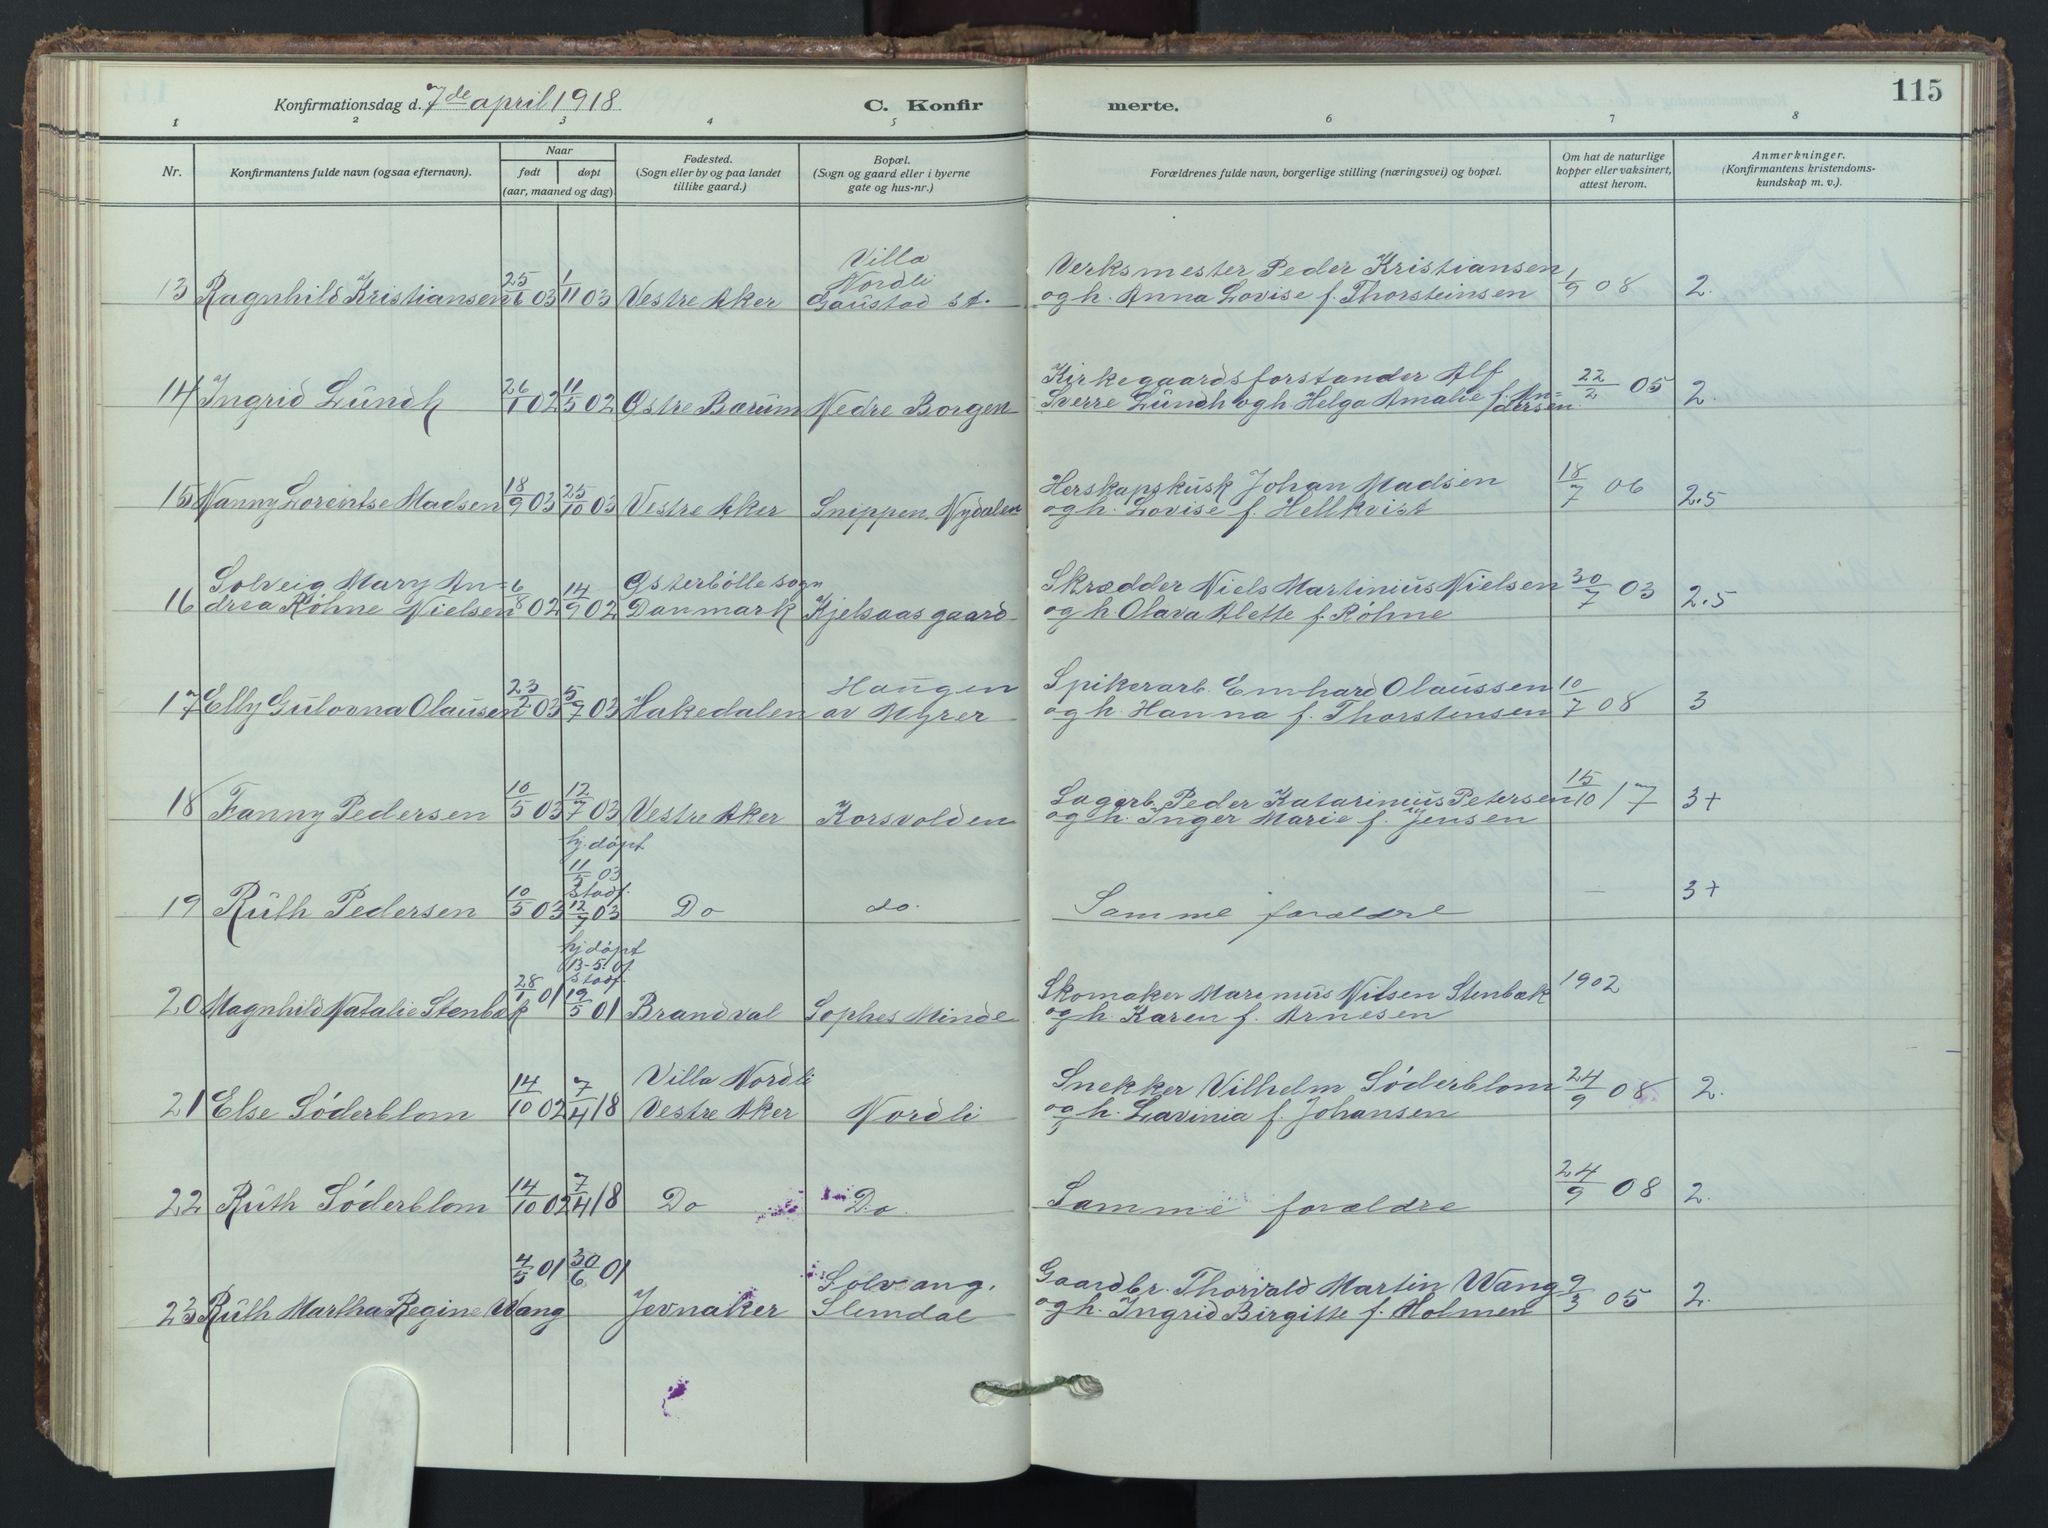 115
Konfirmationsdag d. 7de april 1918
C. Konfirmerte.
1 2 3 4 5 6 7 8
Nr.
Konfirmantens fulde navn (ogsaa efternavn).
Naar
født døpt
(aar, maaned og dag)
Fødested.
(Sogn eller by og paa landet
tillike gaard.)
Bopæl.
(Sogn og gaard eller i byerne
gate og hus-nr.)
Forældrenes fulde navn, borgerlige stilling (næringsvei) og bopæl.
Om hat de naturlige
kopper eller vaksinert,
attest herom.
Anmerkninger.
(Konfirmantens kristendoms-
kundskap m. v.).
Villa
Nordli
Verksmester Peder Kristiansen
13 Ragnhild Kristiansen 25/6 03 1/11 03 Vestre Aker Gaustad st. og h. Anna Lovise f. Thorsteinsen 1/9 08 2.
Kirkegaardsforstander Alf
14 Ingrid Lundh 26/1 02 11/5 02 Østre Bærum Nedre Borgen Sverre Lundh og h. Helga Amalie f. An= 22/2 05 2.
dersen
Herskapskusk Johan Madsen
15 Nanny Lorentse Madsen 18/9 03 25/10 03 Vestre Aker Snippen. Nydalen og h. Lovise f. Hellkvist 18/7 06 2.5
Solveig Mary An= Østerbölle sogn Skrædder Niels Martinius Nielsen
16 drea Røhne Nielsen 6/8 02 14/9 02 Danmark Kjelsaas gaard og h Olava Alette f. Røhne 30/7 03 2.5
Haugen Spikerarb. Emhard Olaussen
17 Elly Gulovna Olausen 23/2 03 5/7 03 Hakedalen av Myrer og h. Hanna f. Thorstensen 10/7 08 3
Sagarb. Peder Katarinius Petersen
18 Fanny Pedersen 10/5 03 12/7 03 Vestre Aker Korsvolden og h. Inger Marie f. Jensen 15/10 17 3+
hj. døpt
11/5 03
Stadf.
19 Ruth Pedersen 10/5 03 12/7 03 Do do. Samme forældre — 3+
hj døpt
13-5. 01
stadf.
Skomaker Marinius Nilsen Stenbæk 1902
20 Magnhild Natalie Stenbæk 28/1 01 19/5 01 Brandval Sophes Minde og h. Karen f. Arnesen
Villa Nordli Snekker Vilhelm Söderblom
21 Else Söderblom 14/10 02 7/4 18 Vestre Aker Nordli og h. Lavinia f. Johansen 24/9 08 2.
22 Ruth Söderblom 14/10 02 7/4 18 Do Do. Samme forældre 24/9 08 2.
4/5 01 30/6 01 Solvang. Gaardbr. Thorvald Martin Wang
23 Ruth Martha Regine Wang Jevnaker Slemdal og h. Ingrid Birgitte f. Holmen 9/3 05 2.